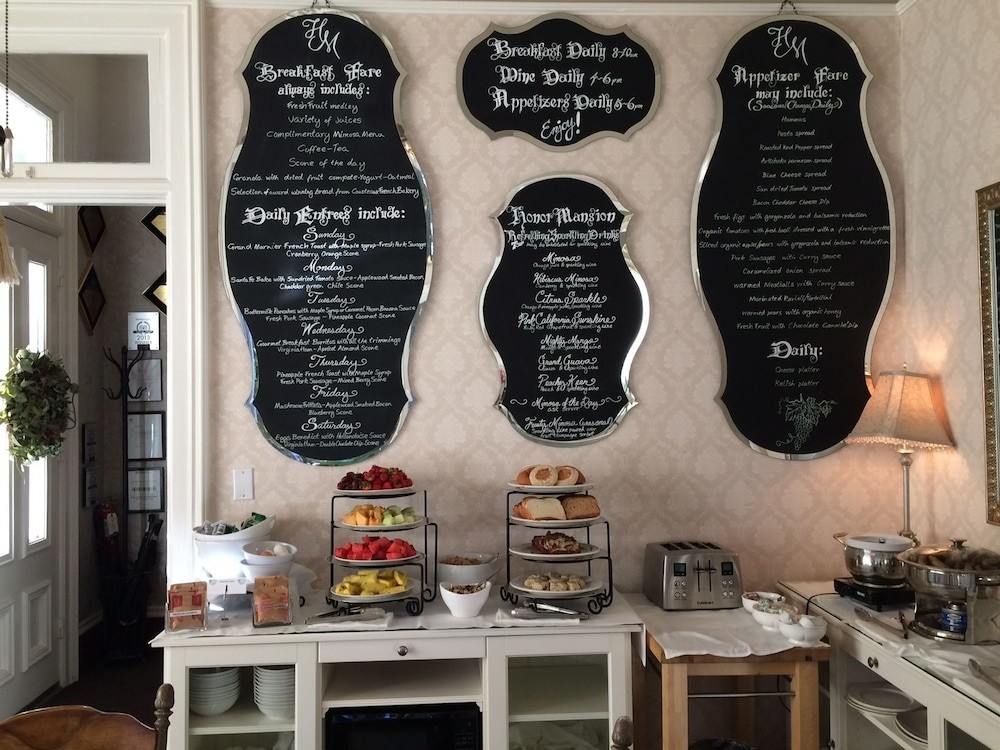 HM
Breakfast Fare
always includes:
Fresh fruit medley
Variety of Juices
Complimentary Mimosa Menu
Coffee-Tea
Scone of the day
Granola with dried fruit compote-Yogurt-Oatmeal
Selection of award winning bread from Costeaux French Bakery
Daily Entrees include:
Sunday
Grand Marnier French Toast with Maple syrup-Fresh Pork Sausage
Cranberry Orange Scone
Monday
Santa Fe Bake with Sundried Tomato sauce-Applewood Smoked Bacon
Cheddar green Chile Scone
Tuesday
Buttermilk Pancakes with Maple Syrup or Caramel Pecan Banana Sauce
Fresh Pork Sausage - Pineapple Coconut Scone
Wednesday
Gourmet Breakfast Burritos with all the trimmings
Virginia Ham - Apricot Almond Scone
Thursday
Pineapple French Toast with Maple Syrup
Fresh Pork Sausage - Mixed Berry Scone
Friday
Mushroom Frittata - Applewood Smoked Bacon
Blueberry Scone
Saturday
Eggs Benedict with Hollandaise Sauce
Virginia Ham - Double Chocolate Chip Scone
Breakfast Daily 8-10am
Wine Daily 4-6pm
Appetizers Daily 5-6pm
Enjoy!
Honor Mansion
Refreshing Sparkling Drinks
may be substituted for sparkling wine
Mimosa
Orange juice & sparkling wine
Hibiscus Mimosa
Cranberry & sparkling wine
Citrus Sparkle
Pink California Sunshine
Ruby Red Grapefruit & sparkling wine
Mighty Mango
Mango & Sparkling wine
Grand Guava
Guava & Sparkling wine
Peachy Keen
Peach & sparkling wine
Mimosa of the Day
ask server
Fruity Mimosa (seasonal)
Sparkling wine poured over
fruit champagne sorbet
HM
Appetizer Fare
may include:
(Seasonal/Changes Daily)
Hummus
Pesto spread
Roasted Red Pepper spread
Artichoke parmesan spread
Blue Cheese spread
Sun dried Tomato spread
Bacon Cheddar Cheese Dip
Fresh figs with gorgonzola and balsamic reduction
Organic tomatoes with fresh basil dressed with a fresh vinaigrette
Sliced organic apple/pears with gorgonzola and balsamic reduction
Pork Sausages with Curry sauce
Caramelized onion spread
warmed Meatballs with Curry sauce
Marinated Ravioli/Tortellini
warmed pears with organic honey
Fresh Fruit with Chocolate Cannoli Dip
Daily:
Cheese platter
Relish platter
2013
Cuisinart